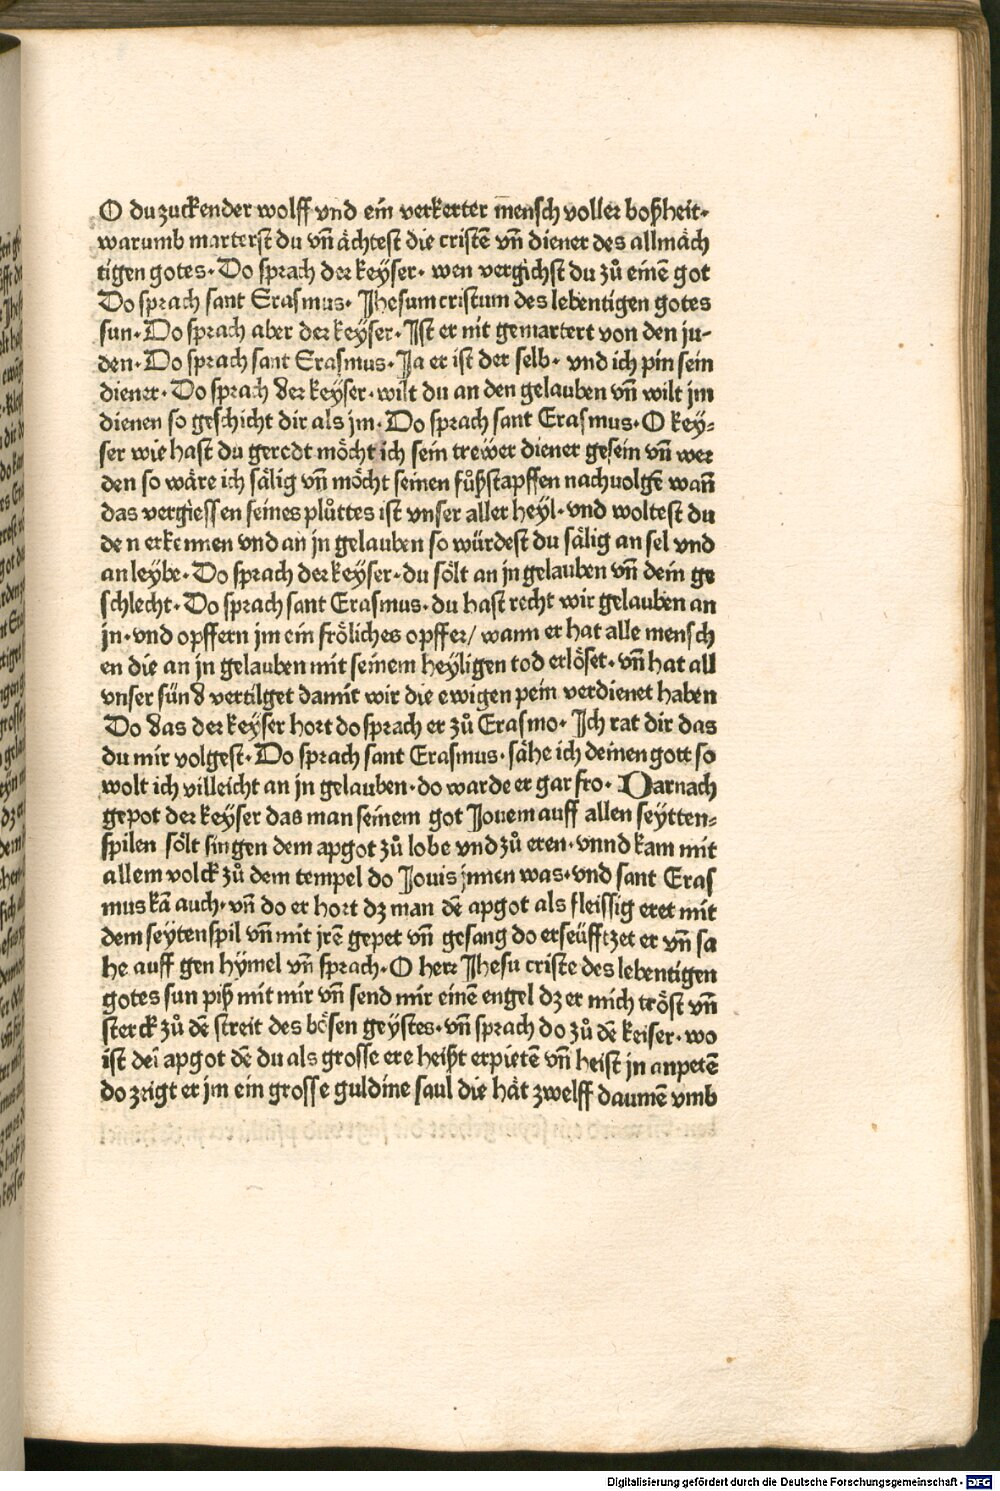 O du zuckender wolff vnd ein verkerter mensch voller boßheit·
warumb marterst du vn̄ ächtest die cristē vn̄ diener des allmäch
tigen gotes· Do sprach der keÿser· wen vergichst du zů einē got
Do sprach sant Erasmus· Jhesum cristum des lebentigen gotes
sun· Do sprach aber der keÿser· Jst er nit gemartert von den ju-
den· Do sprach sant Erasmus· Ja er ist der selb· vnd ich pin sein
diener· Do sprach der keÿser· wilt du an den gelauben vn̄ wilt jm
dienen so geschicht dir als jm· Do sprach sant Erasmus· O keÿ-
ser wie hast du geredt möcht ich sein treẅer diener gesein vn̄ wer
den so wäre ich sälig vn̄ möcht seinen fůßstapffen nachuolgē wan̄
das vergiessen seines plůttes ist vnser aller heyl· vnd woltest du
den erkennen vnd an jn gelauben so würdest du sälig an sel vnd
an leÿbe· Do sprach der keÿser· du sölt an jn gelauben vn̄ dein ge
schlecht· Do sprach sant Erasmus· du hast recht wir gelauben an
jn· vnd opffern jm ein fröliches opffer/ wann er hat alle mensch
en die an jn gelauben mit seinem heÿligen tod erlöset· vn̄ hat all
vnser sünd vertilget damit wir die ewigen pein verdienet haben
Do das der keÿser hort do sprach er zů Erasmo· Jch rat dir das
du mir volgest· Do sprach sant Erasmus· sähe ich deinen gott so
wolt ich villeicht an jn gelauben· do warde er gar fro· Darnach
gepot der keÿser das man seinem got Jouem auff allen seÿtten-
spilen sölt singen dem apgot zů lobe vnd zů eren· vnnd kam mit
allem volck zů dem tempel do Jouis jnnen was· vnd sant Eras
mus kā auch· vn̄ do er hort dz man dē apgot als fleissig eret mit
dem seytenspil vn̄ mit jrē gepet vn̄ gesang do erseüfftzet er vn̄ sa
he auff gen hÿmel vn̄ sprach· O herr Jhesu criste des lebentigen
gotes sun piß mit mir vn̄ send mir einē engel dz er mich tröst vn̄
sterck zů dē streit des bösen geÿstes· vn̄ sprach do zů dē keiser· wo
ist dei apgot dē du als grosse ere heißt erpietē vn̄ heist jn anpetē
do zeigt er jm ein grosse guldine saul die hät zwelff daumē vmb
Digitalisierung gefördert durch die Deutsche Forschungsgemeinschaft - DFG